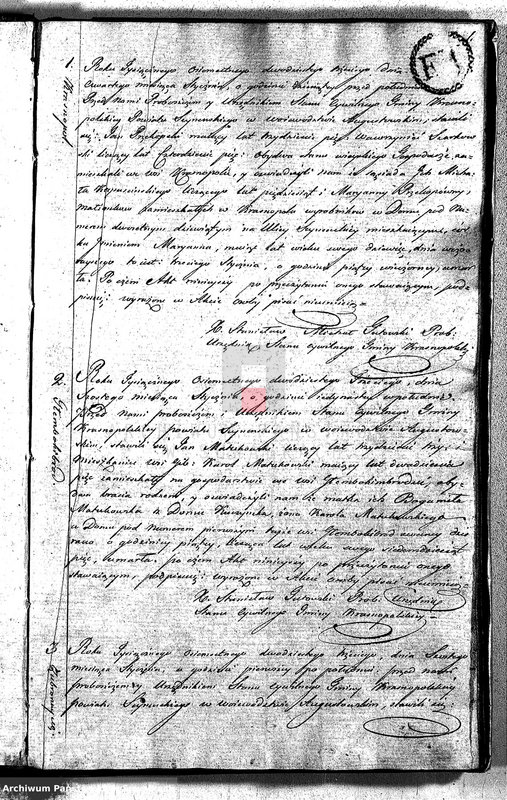 1.
Krasnopol
Roku Tysiącznego Osiemsetnego dwudziestego trzeciego dnia
czwartego miesiąca Stycznia, o godzinie dziewiątey przed południem
Przed Nami Proboszczem y Urzędnikiem Stanu Cywilnego Gminy Krasno-
polskiey Powiatu Seyneńskiego w Woiewodztwie Augustowskim, stawili
się: Jan Przekopski maiący lat trzydzieści pięć, Wawrzyniec
liczący lat Czterdzieści pięć: Obydwa Gospodarze, za-
mieszkali we wsi Krasnopolu, y oświadczyli nam iż
liczącego lat pięćdziesiąt i Maryanny
małżonków zamieszkałych w Krasnopolu wyrobników w Domu pod Nu-
merem dwudziestym dziewiątym na Ulicy Seyneńskiey mieszkaiących, cór-
ka Imieniem Maryanna, maiąca lat wieku swego dziewięć, dnia wczo-
rayszego to iest: trzeciego Stycznia, o godzinie piątey wieczorney, umar-
ła. Po czem Akt ninieyszy po przeczytaniu onego stawaiącym, podp-
pisuię: wyrażone w Akcie osoby pisać nieumieią
X. Stanisław Michał Gutowski Prob:
Urzędnik Stanu Cywilnego Gminy Krasnopolskiey
2.
Roku Tysiącznego Osiemsetnego dwudziestego Trzeciego, dnia
Szostego miesiąca Stycznia, o godzinie iedynastey w południe.
Przed Nami proboszczem i Urzędnikiem Stanu Cywilnego Gminy
Krasnopolskiey powiatu Seyneńskiego w woiewodztwie Augustow-
skim, stawili się Jan Matukowski liczący lat trzydzieści trzy,
Karol Matukowski maiący lat dwadzieścia
pięć zamieszkały na gospodarstwie we wsi oby-
dwa bracia rodzeni, y oświadczyli nam iż matka ich Bogumiła
Matukowska z Domu żona Karola Matukowskiego
w Domu pod Numerem pierwszym teyże wsi
rano o godzinie piątey, licząca lat wieku swego siedemdziesiąt
pięć, umarła, po czem Akt ninieyszy po przeczytaniu onego
stawaiącym, podpisuię: wyrażone w Akcie osoby pisać nieumieią
X. Stanisław Gutowski Prob. Urzędnik
Stanu Cywilnego Gminy Krasnopolskiey
3.
Roku Tysiącznego Osiemsetnego dwudziestego trzeciego, dnia Szostego
miesiąca Stycznia, o godzinie pierwszey po południu, przed nami
proboszczem y Urzędnikiem Stanu Cywilnego Gminy Krasnopolskiey
powiatu Seyneńskiego w woiewodztwie Augustowskim, stawili się:
Archiwum Pa